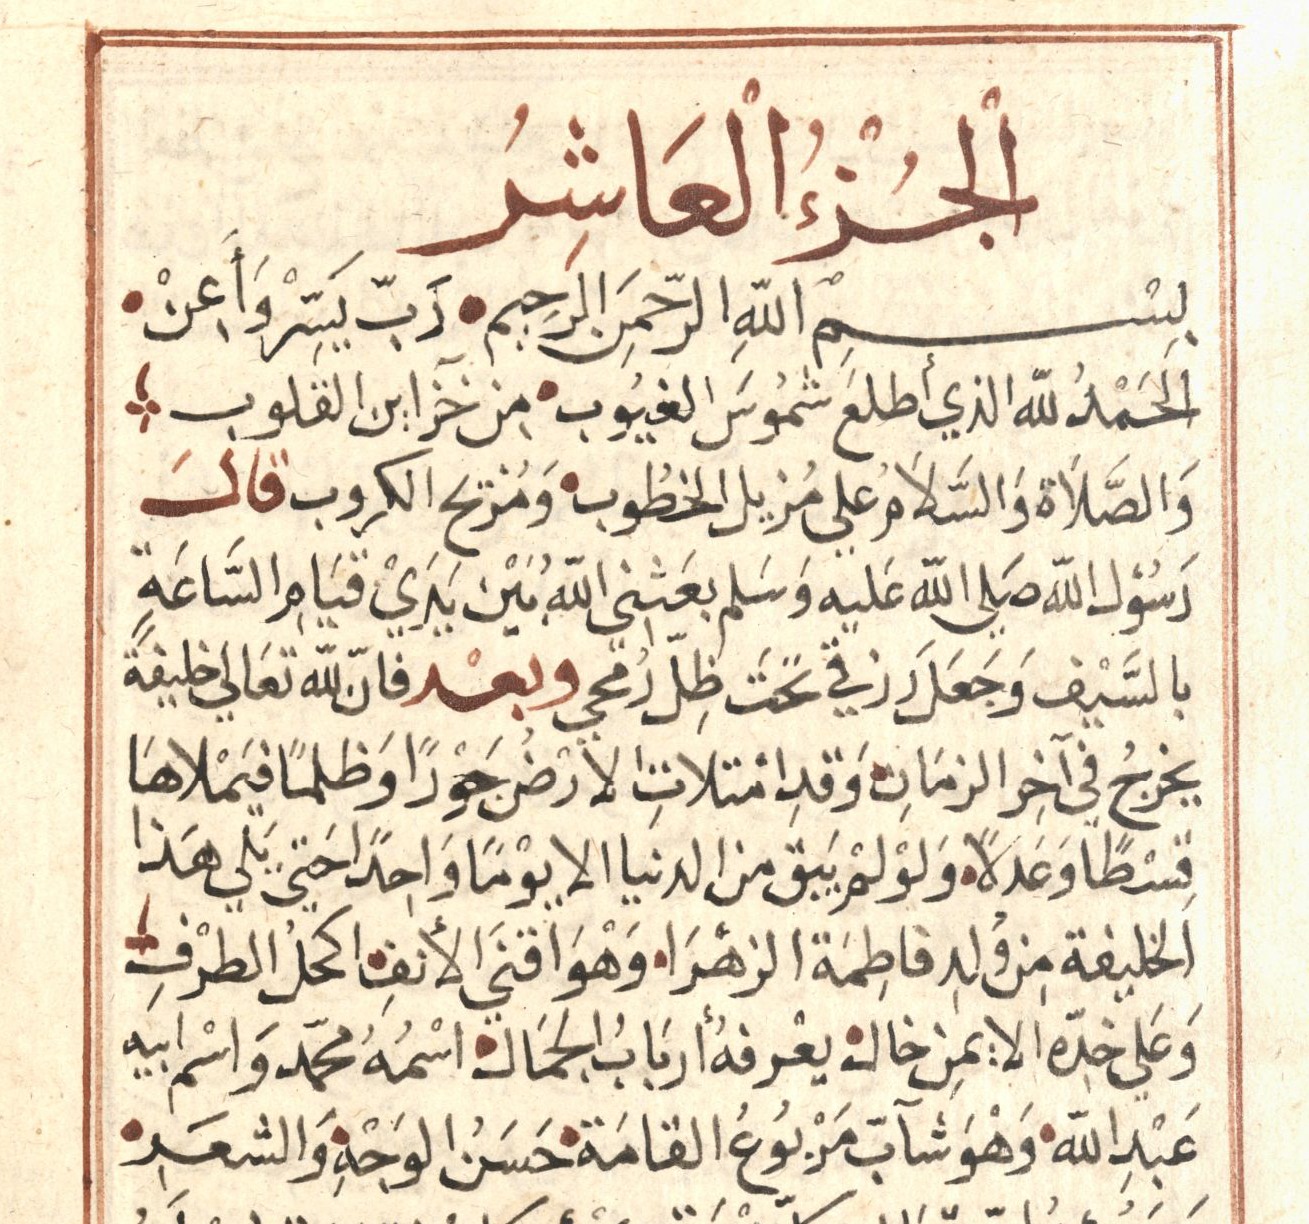 اَلْجُزْءُ الْعَاشِرُ
بِسْمِ اللّهِ الرّحمنِ الرّحِيم رَبّ يَسِّرْ وَأَعِنْ
الحَمْدُ للّه الذي أطلعَ شمُوسَ الغيُوب مِن خَزآاين القلوب
وَالصَّلاَة وَالسَّلاَمُ علي مُزيل الخطُوب وَمُزيح الكروب قالَ
رَسُوْل اللّه صَلي اللّه عَليه وَسَلم بعَثني اللّهُ بَيْن يَدَيْ قيَامِ السَّاعَةِ
بالسَّيْفِ وَجَعَلَ رزقي تحَتَ ظِلّ رُمحي وبعْد فانّ للّه تعَالي خليفَةً
يخرجُ في آخِر الزمَانِ وَقدِ امْتلاتِ الاَرْضُ جَوْرًا وَظلمًا فيَمْلاهَا
قِسْطًا وَعَدلاً وَلوْ لمْ يَبق من الدنيا الا يوْمًا وَاحِدًا حَتي يَلي هَذا
الخليفة مِن وُلدِ فاطِمَة الزهْرَا وَهْوَ اقنَي الأنفِ اكحلُ الطرْفِ
وَعَلي خدّه الايمنِ خال يعْرفهُ أربَابُ الجَمَال اسْمُهُ محمّد وَاسْم ابيَهِ
عَبْدِ اللّه وَهْوَ شآبّ مَرْبُوعُ القامَة حَسَنُ الوَجْهِ وَالشعَرِ